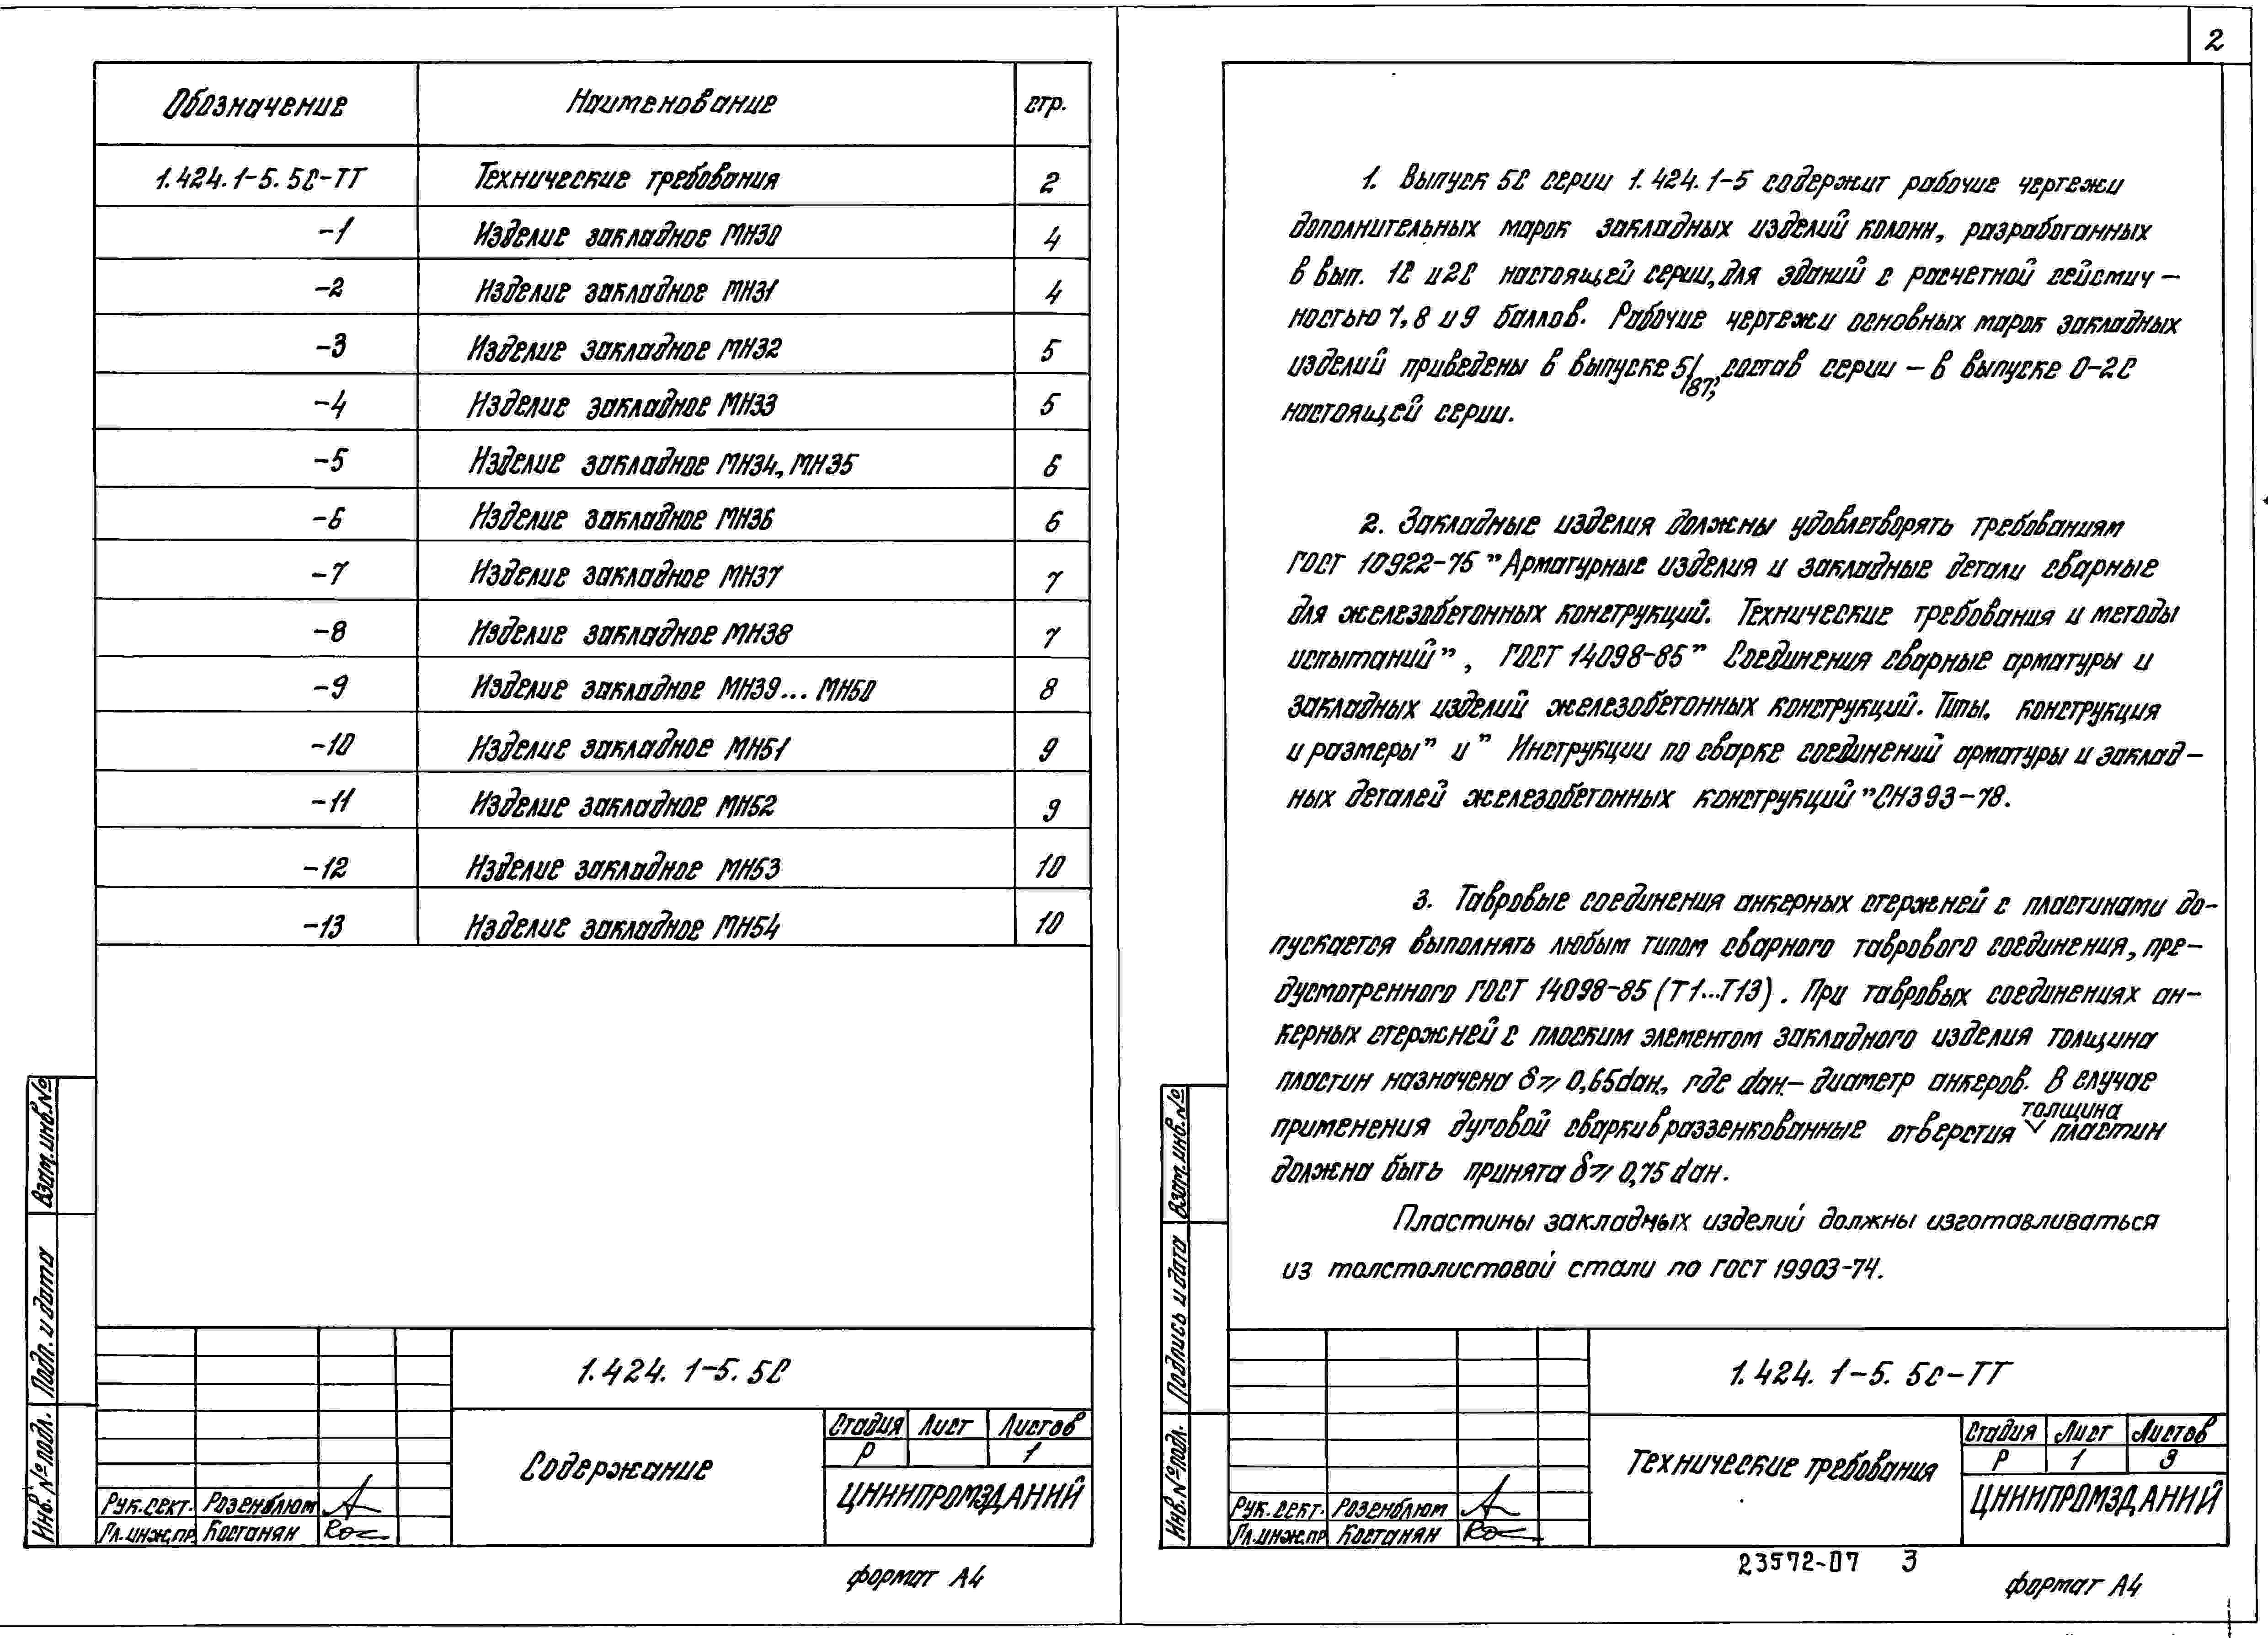 Обозначение Наименование стр.
1.424.1-5.5С-ТТ Технические требования 2
-1 Изделие закладное МН30 4
-2 Изделие закладное МН31 4
-3 Изделие закладное МН32 5
-4 Изделие закладное МН33 5
-5 Изделие закладное МН34, МН35 6
-6 Изделие закладное МН36 6
-7 Изделие закладное МН37 7
-8 Изделие закладное МН38 7
-9 Изделие закладное МН39... МН50 8
-10 Изделие закладное МН51 9
-11 Изделие закладное МН52 9
-12 Изделие закладное МН53 10
-13 Изделие закладное МН54 10
Взам.инв.№
Подп. и дата
Инв.№ подл.
1.424.1-5.5С
Содержание
Стадия Лист Листов
Р 1
ЦНИИПРОМЗДАНИЙ
Рук.сект. Розенблюм
Гл.инж.пр Костанян
формат А4
2
1. Выпуск 5С серии 1.424.1-5 содержит рабочие чертежи
дополнительных марок закладных изделий колонн, разработанных
в вып. 1С и 2С настоящей серии, для зданий с расчетной сейсмич-
ностью 7, 8 и 9 баллов. Рабочие чертежи основных марок закладных
изделий приведены в выпуске 5/87, состав серии - в выпуске 0-2С
настоящей серии.
2. Закладные изделия должны удовлетворять требованиям
ГОСТ 10922-75 "Арматурные изделия и закладные детали сварные
для железобетонных конструкций. Технические требования и методы
испытаний", ГОСТ 14098-85" Соединения сварные арматуры и
закладных изделий железобетонных конструкций. Типы, конструкция
и размеры" и " Инструкции по сварке соединений арматуры и заклад-
ных деталей железобетонных конструкций" СН393-78.
3. Тавровые соединения анкерных стержней с пластинами до-
пускается выполнять любым типом сварного таврового соединения, пре-
дусмотренного ГОСТ 14098-85 (Т1...Т13). При тавровых соединениях ан-
керных стержней с плоским элементом закладного изделия толщина
пластин назначена δ ⩾ 0,65dан., где dан.- диаметр анкеров. В случае
применения дуговой сварки в раззенкованные отверстия толщина пластин
должна быть принята δ ⩾ 0,75 dан.
Пластины закладных изделий должны изготавливаться
из толстолистовой стали по ГОСТ 19903-74.
Взам.инв.№
Подпись и дата
Инв.№ подл.
1.424.1-5.5С-ТТ
Технические требования
Стадия Лист Листов
Р 1 3
ЦНИИПРОМЗДАНИЙ
Рук.сект. Розенблюм
Гл.инж.пр Костанян
23572-07 3
формат А4